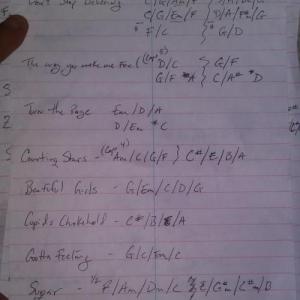 Don't Stop Believing C/G/Am/F } D/A/Bm/G
C/G/Em/F } D/A/F#m/G
* F/C } * G/D
The way you make me feel (Capo D/C } G/F
G/F *A } C/A# *D
Turn the Page Em/D/A
D/Em *C
Counting Stars - (Capo 4) Am/C/G/F } C#/E/B/A
Beatiful Girls - G/Em/C/D/G
Cupids Chokehold - C#/B/E/A
Gotta Feeling - G/C/Em/C
Sugar - 1/2 F/Am/Dm/C E/G#m/C#m/B